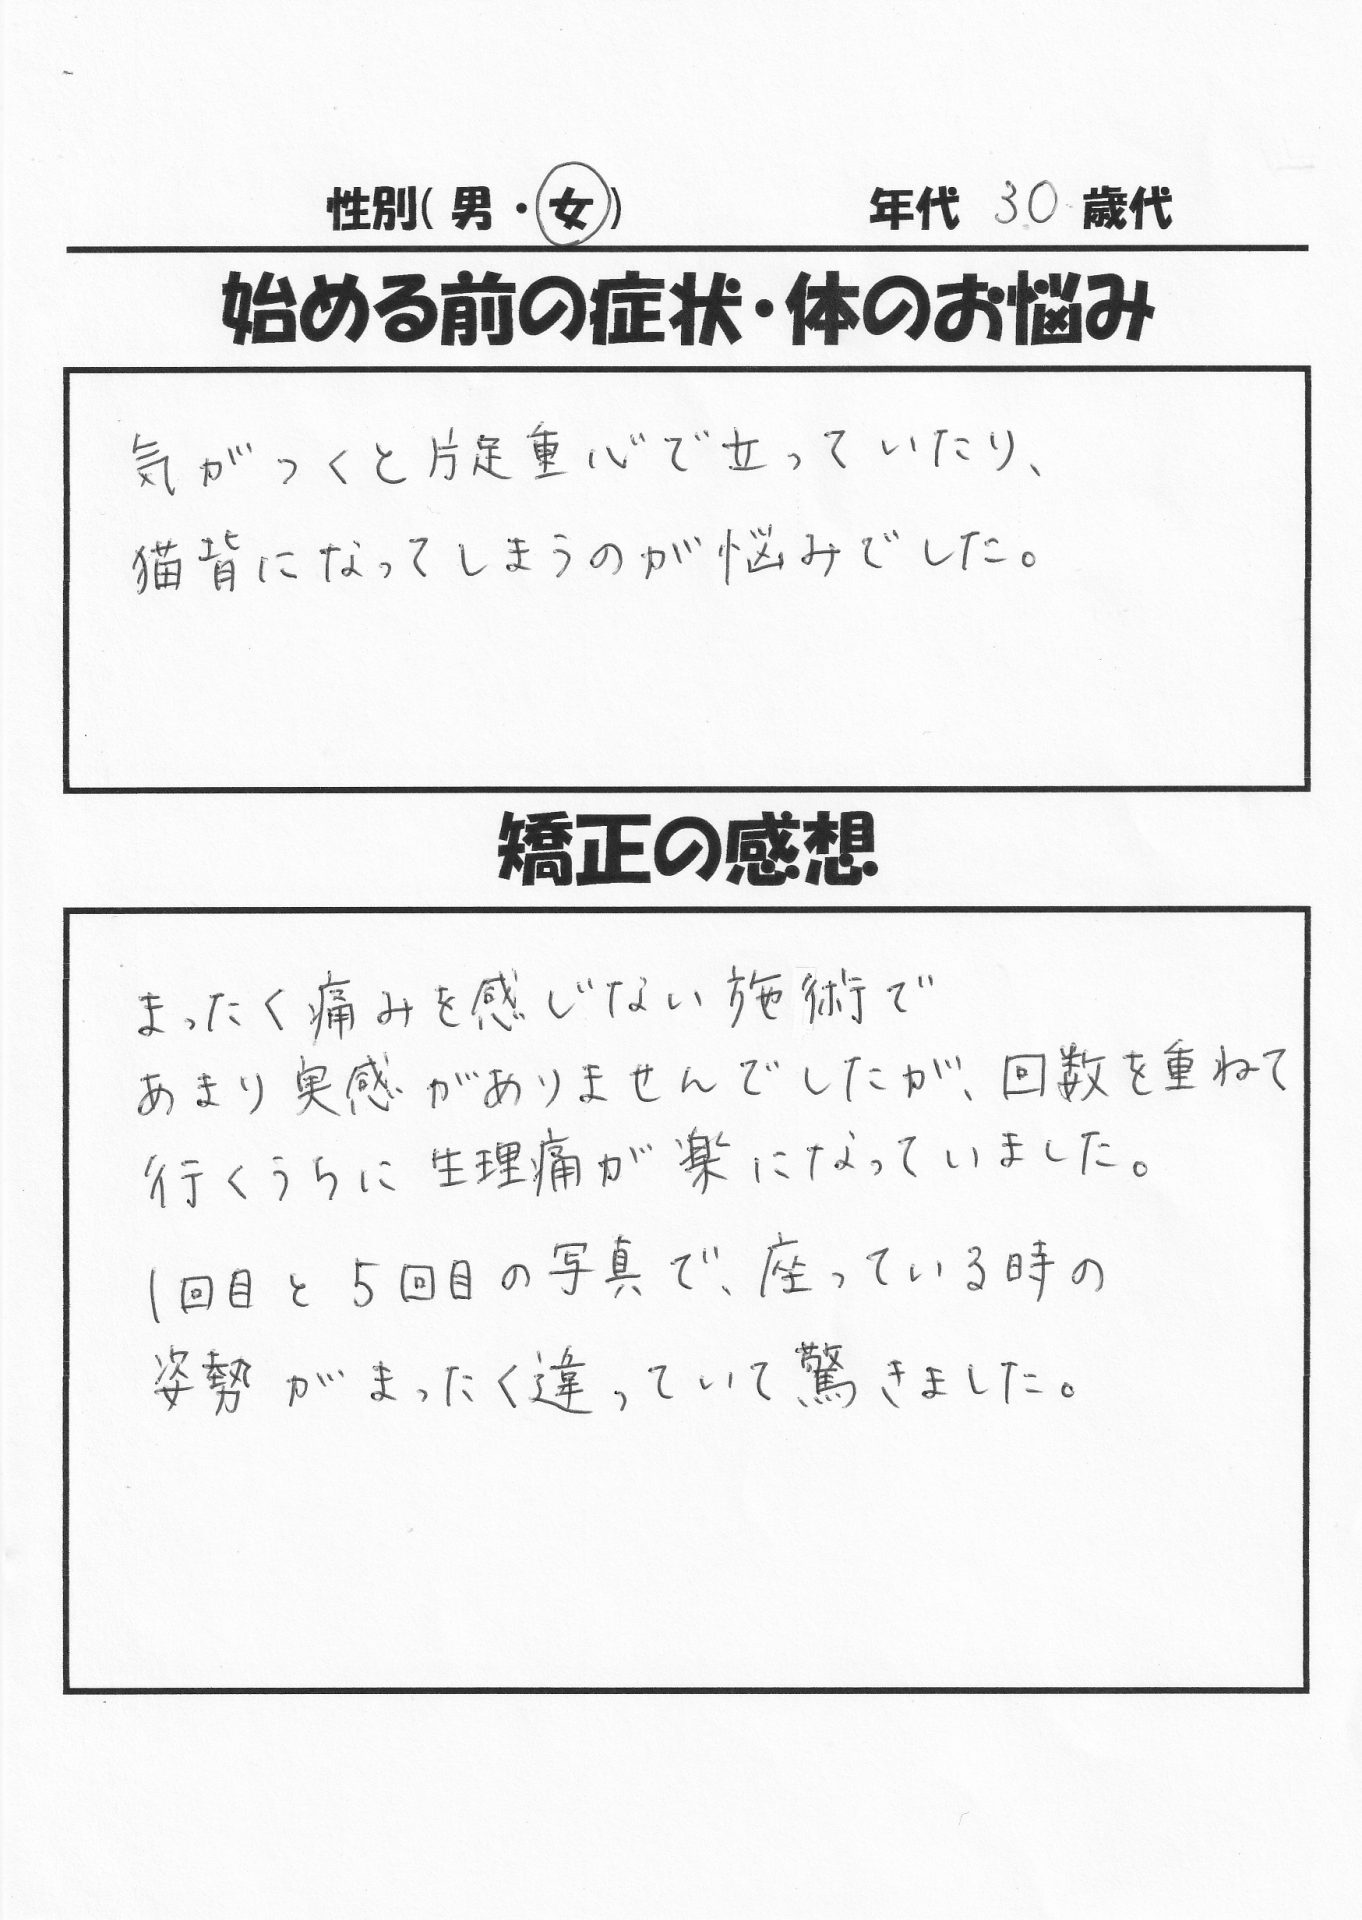 性別( 男・女) 年代 30 歳代
始める前の症状・体のお悩み
気がつくと片足重心で立っていたり、
猫背になってしまうのが悩みでした。
矯正の感想
まったく痛みを感じない施術で
あまり実感がありませんでしたが、回数を重ねて
行くうちに生理痛が楽になっていました。
1回目と5回目の写真で、座っている時の
姿勢がまったく違っていて驚きました。